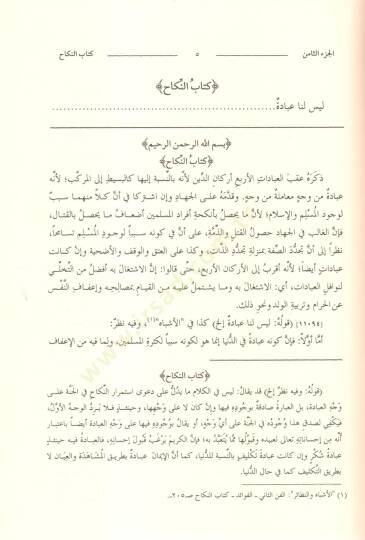 الجزء الثامن ــــــــــ ٥ ــــــــــ كتاب النكاح
﴿كتابُ النِّكاح﴾
ليس لنا عبادةٌ ............................................................
﴿بسم الله الرحمن الرحيم﴾
﴿كتابُ النِّكاح﴾
ذكَرَهُ عقِبَ العباداتِ الأربعِ أركانِ الدِّين لأنَّه بالنسبة إليها كالبسيطِ إلى المركَّبِ؛ لأنَّه
عبادةٌ من وجهٍ معاملةٌ من وجهٍ، وقدَّمَهُ على الجهادِ وإن اشتركا في أنَّ كلاً منهما سببٌ
لوجودِ المسْلِمِ والإسلامِ؛ لأنَّ ما يحصُلُ بأنكحةِ أفرادِ المسلمين أضعافُ ما يحصُلُ بالقتال،
فإنَّ الغالب في الجهادِ حصولُ القتلِ والذِّمَّةِ، على أنَّ في كونه سبباً لوجودِ المسلمِ تسامحاً،
نظراً إلى أنَّ تجدُّدَ الصِّفة بمنزلةِ تجدُّدِ الذَّات، وكذا على العتق والوقف والأضحية وإن كانت
عباداتٍ أيضاً؛ لأنَّه أقربُ إلى الأركان الأربع، حتّى قالوا: إنَّ الاشتغالَ به أفضلُ من التَّخلّي
لنوافلِ العبادات، أي: الاشتغالِ به وما يشتملُ عليه من القيامِ بمصالحِهِ وإعفافِ النَّفْس
عن الحرامِ وتربيةِ الولدِ ونحوِ ذلك.
[١١٠٩٤] (قولُهُ: ليس لنا عبادةٌ إلخ) كذا في "الأشباه"(١)، وفيه نظرٌ:
أمَّا أوَّلاً: فإنَّ كونه عبادةً في الدُّنيا إنما هو لكونه سبباً لكثرةِ المسلمين، ولِما فيه من الإعفافِ
﴿كتاب النكاح﴾
(قولُهُ: وفيه نظرٌ إلخ) قد يقالُ: ليس في الكلامِ ما يدُلُّ على دعوى استمرار النِّكاح في الجنَّة على
وَجْهِ العبادة، بل العبارةُ صادقةٌ بوجُودِهِ فيها وإن كان لا على وَجْهِها، وحينئذٍ فلا يَرِدُ الوجهُ الأوَّلُ،
فيَكْفي لصدقِ هذا وُجُودُه في الجنَّة على أيِّ وَجْهٍ، أو يقالُ بوُجُودِه فيها على وَجْهِ العبادة أيضاً باعتبار
أنَّه من إحساناتِهِ تعالى لعبيدِه وقَبولُها مَّا يُتَعبَّدُ به؛ فإنَّ الكريمَ يَرغَبُ قَبولَ إحسانِهِ، فالعبادةُ فيه حينئذٍ
عبادةُ شُكْرٍ وإن كانت عبادةَ تكليفٍ بالنِّسبة للدُّنيا، كما أنَّ الإيمانَ عبادةٌ بطريقِ المشَاهَدَة والعِيَان لا
بطريقِ التَّكليفِ كما في حال الدُّنيا.
(١) "الأشباه والنظائر": الفن الثاني ـ الفوائد ـ كتاب النكاح صـ٢٠٥ـ.